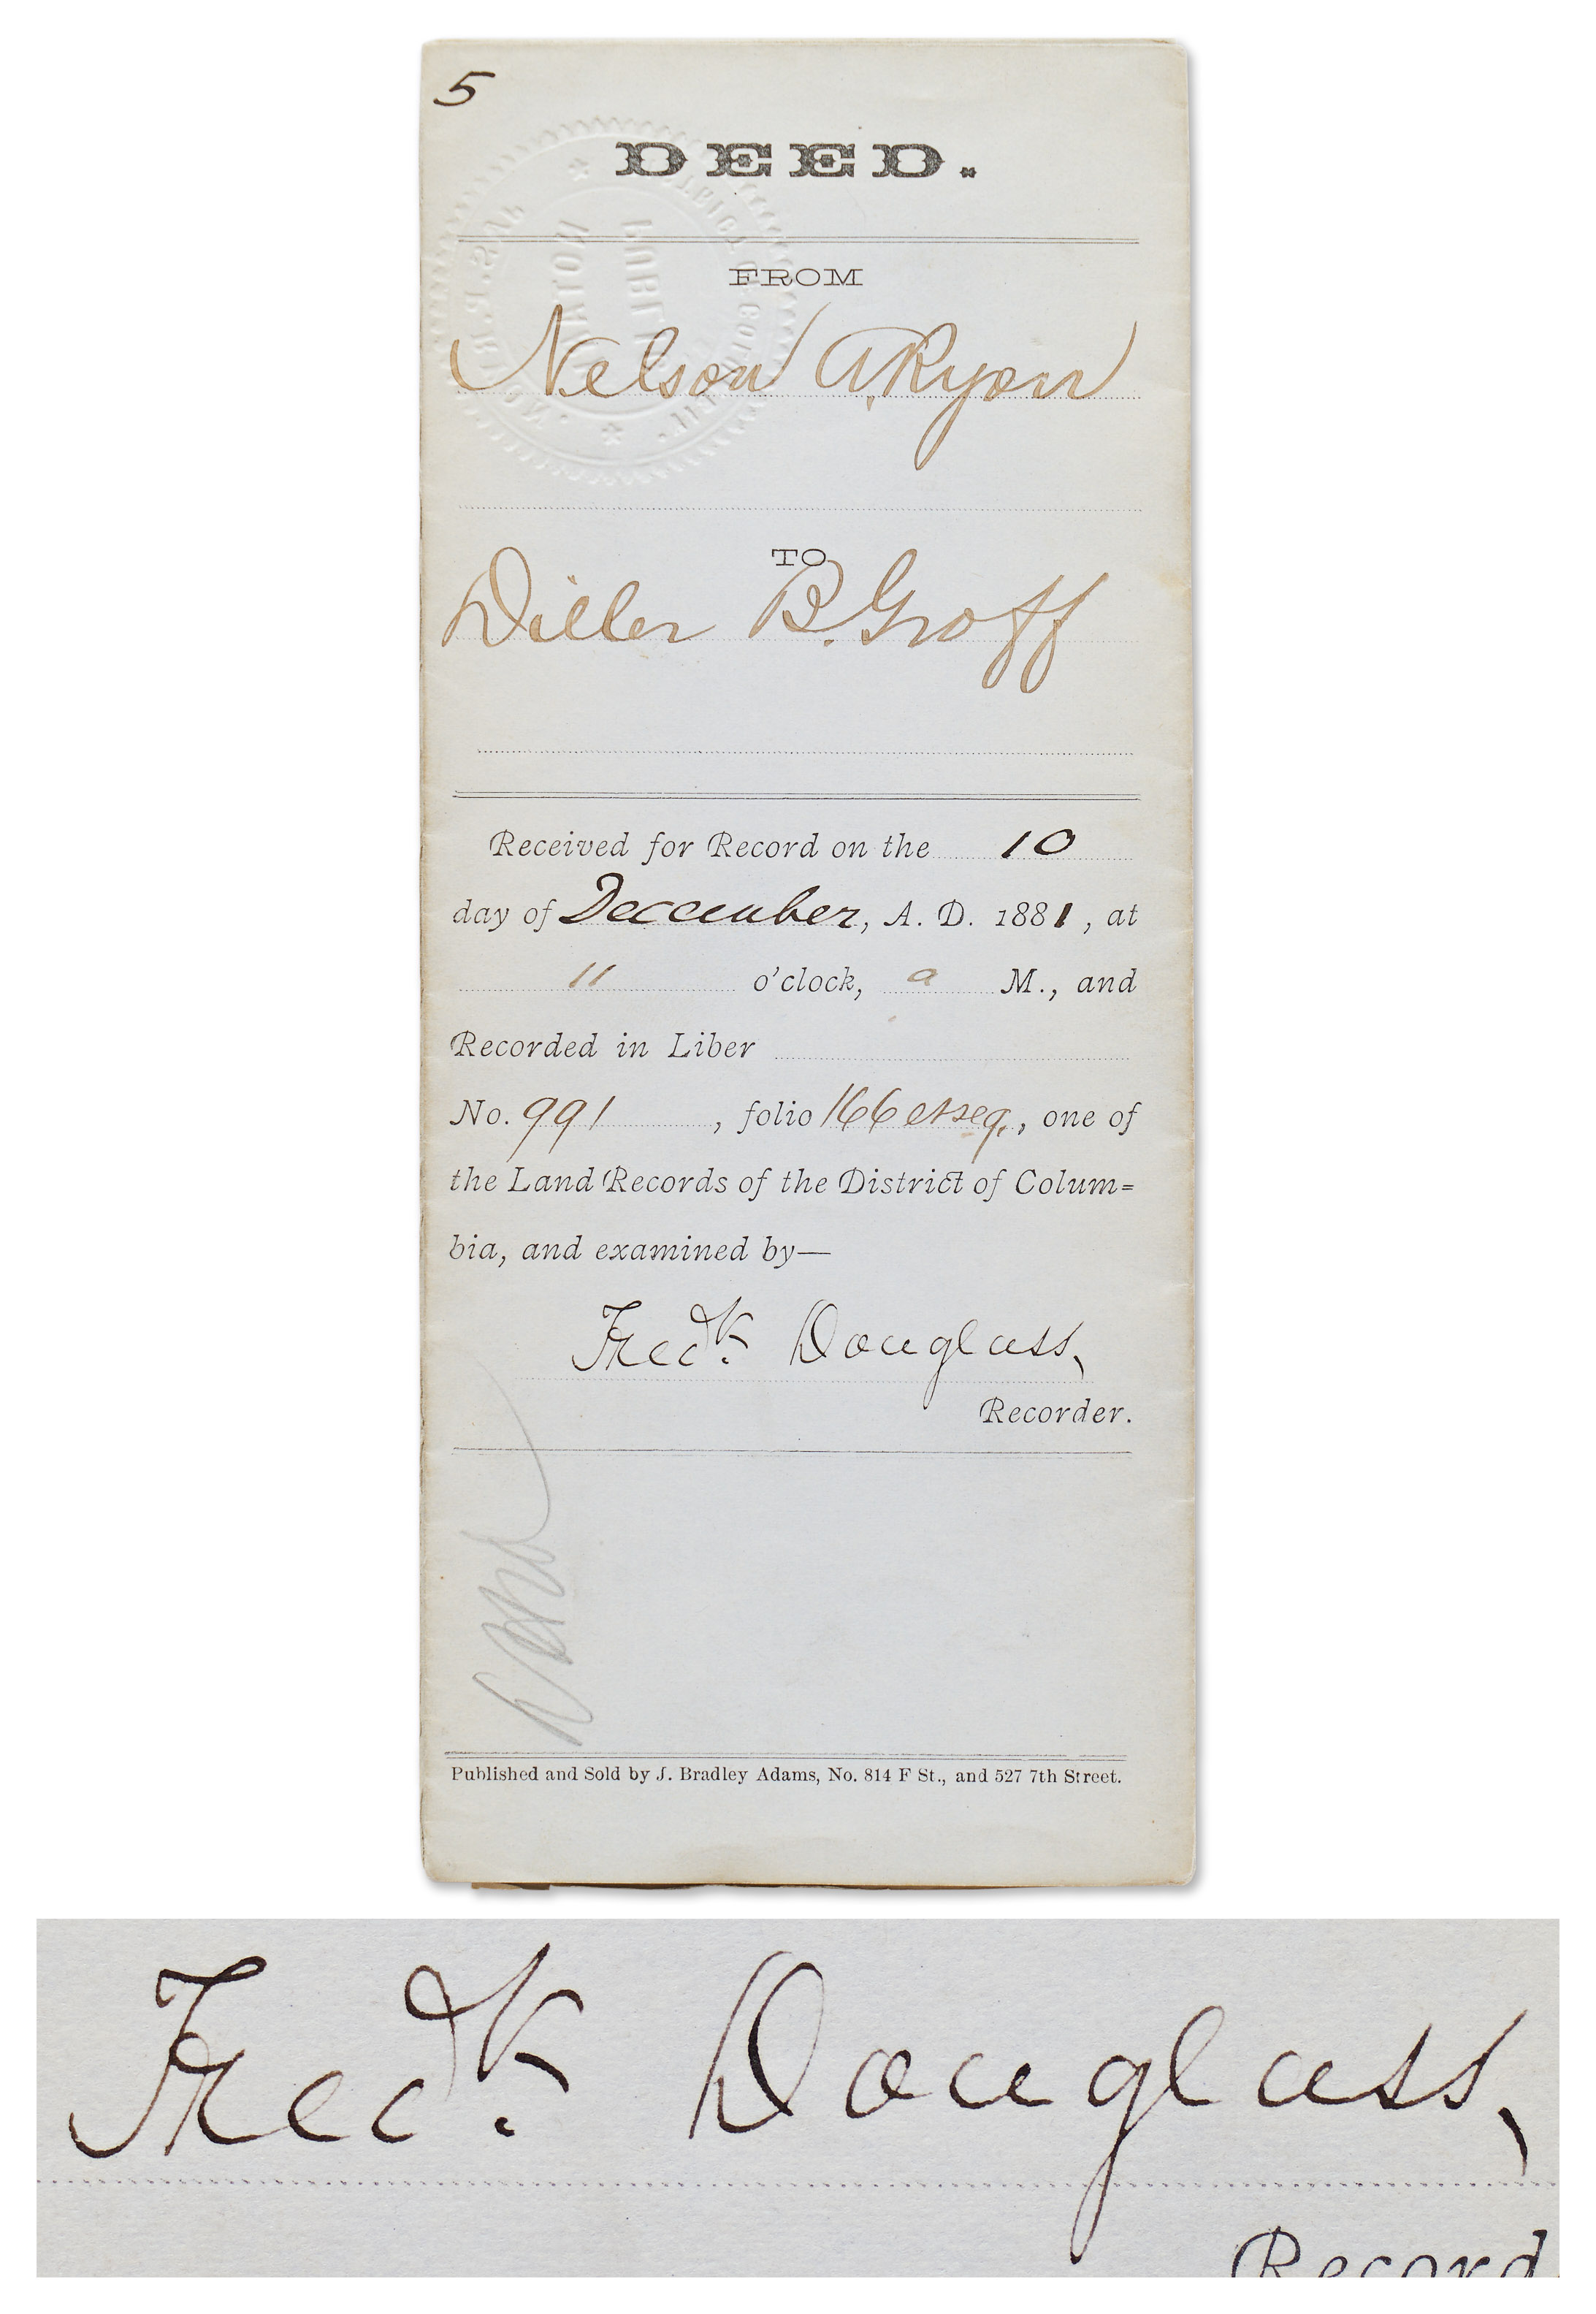 5
DEED.
FROM
Nelson A. Ryon
TO
Diller B. Groff
Received for Record on the 10
day of December, A. D. 1881, at
11 o'clock, a M., and
Recorded in Liber
No. 991, folio 166 et seq., one of
the Land Records of the District of Colum=
bia, and examined by—
Fredk. Douglass,
Recorder.
Published and Sold by J. Bradley Adams, No. 814 F St., and 527 7th Street.
Fredk. Douglass,
Record